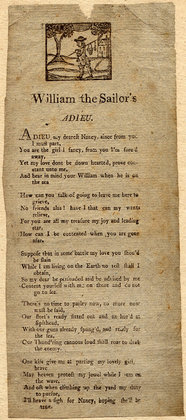 William the Sailor's
ADIEU.
ADIEU, my dearest Nancy, since from you
I must part,
You are the girl I fancy, from you I'm forc'd
away,
Yet my love dont be down hearted, prove con-
stant unto me,
And bear in mind your William when he is on
the sea
How can you talk of going to leave me here to
grieve,
No friends alas! have I that can my wants
relieve,
For you are all my treasure my joy and leading
star.
How can I be contented when you are gone
afar.
Suppose that in some battle my love you shou'd
be slain
While I am living on the Earth no rest shall I
obtain,
So my dear be persuaded and be advised by me
Content yourself with me on shore and do not
go to sea.
There's no time to parley now, to more now
must be said,
Our fleet's ready fitted out and anchor'd at
spithead,
With our guns already spung'd, and ready for
the sea.
Our Thund'ring cannons loud shall roar to drak
the enemy.
One kiss give me at parting my lovely girl,
brave
May heaven protect my jewel while I am on
the wave.
And oft when climbing up the yard my duty
to pursue,
I'll heave a sigh for Nancy, hoping she'll be
true.